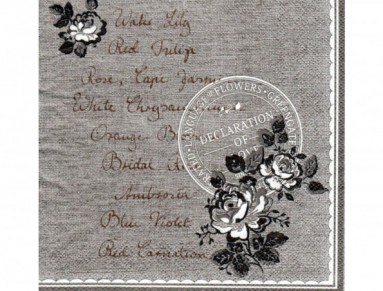 Water Lily
Red Tulip
Rose, Cape Jasmine
White Chrysanthemum
Orange
Bridal
Ambrosia
Blue Violet
Red Carnation
LANGUAGE OF FLOWERS
DECLARATION
OF